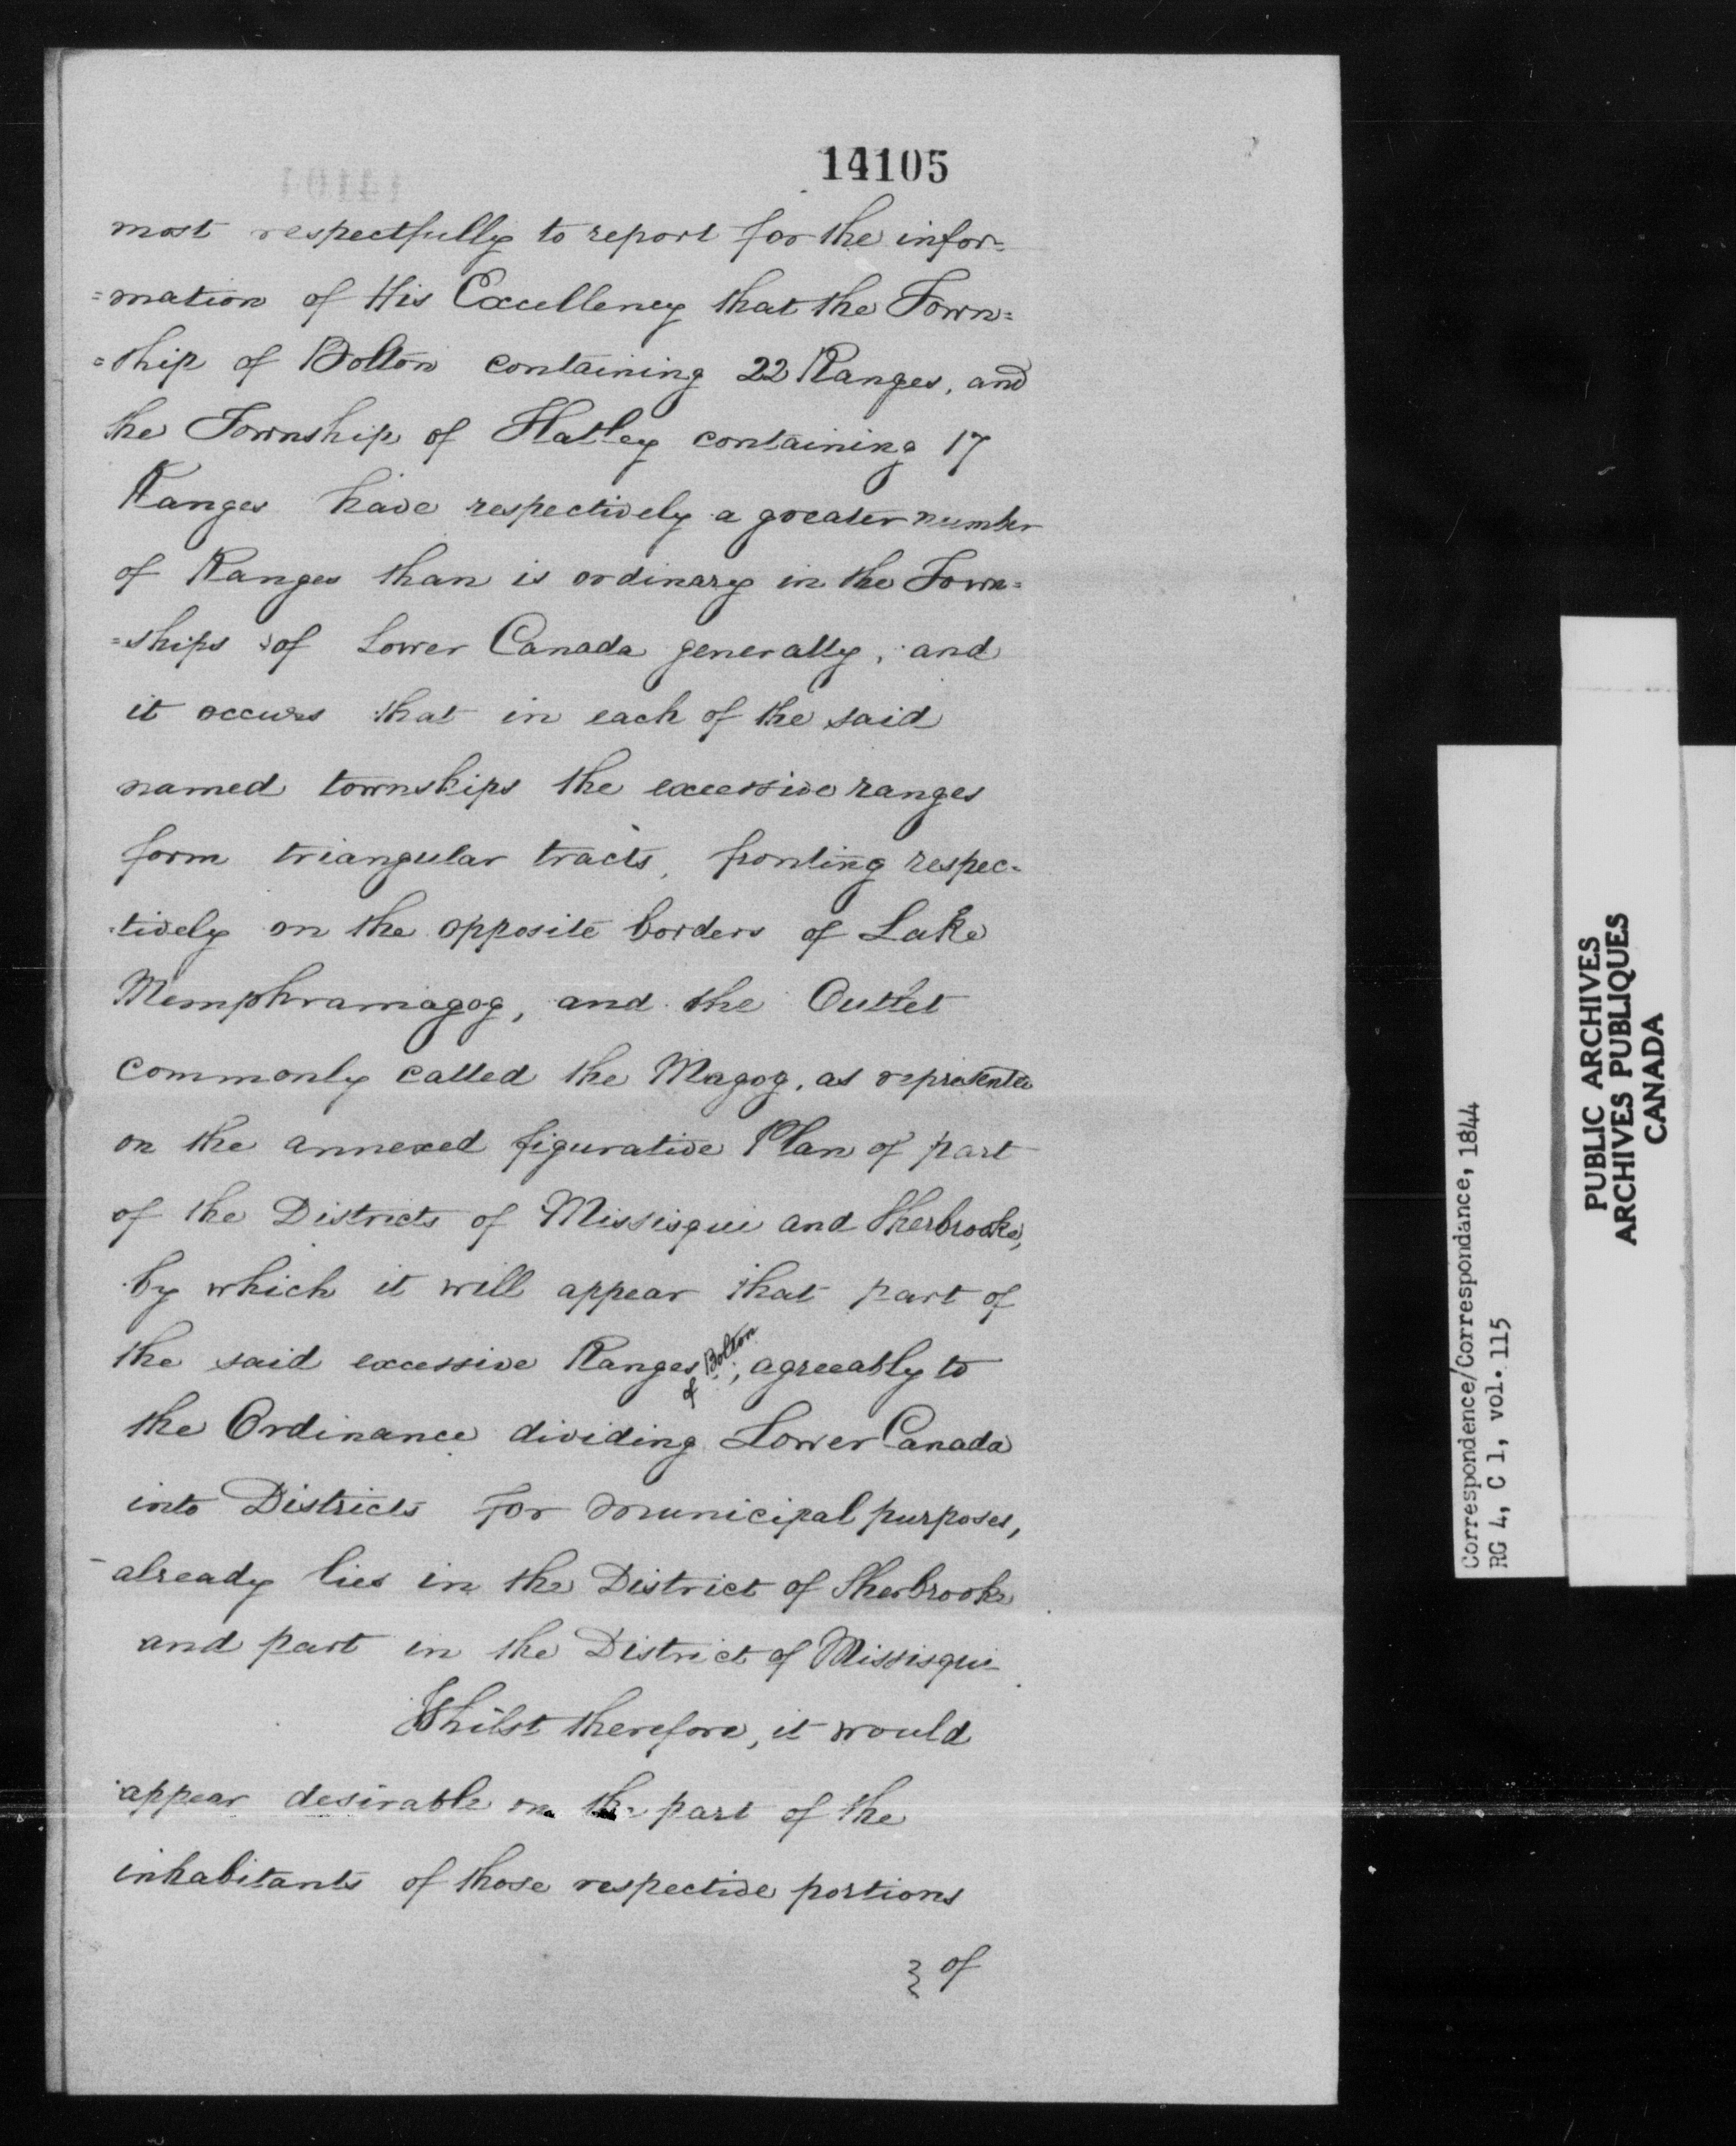 14105
most respectfully to report for the infor=
=mation of His Excellency that the Town=
=ship of Bolton containing 22 Ranges, and
the Township of Hatley containing 17
Ranges have respectively a greater number
of Ranges than is ordinary in the Town=
=ships of Lower Canada generally, and
it occurs that in each of the said
named townships the excessive ranges
form triangular tracts, fronting respec=
tively on the opposite borders of Lake
Memphramagog, and the Outlet
commonly called the Magog, as represented
on the annexed figurative Plan of part
of the Districts of Missisqui and Sherbrooke,
by which it will appear that part of
the said excessive Ranges of Bolton, agreeably to
the Ordinance dividing Lower Canada
into Districts for municipal purposes,
already lies in the District of Sherbrooke
and part in the District of Missisqui
Whilst therefore, it would
appear desirable on the part of the
inhabitants of those respective portions
of
Correspondence/Correspondance, 1844
RG 4, C 1, vol. 115
PUBLIC ARCHIVES
ARCHIVES PUBLIQUES
CANADA